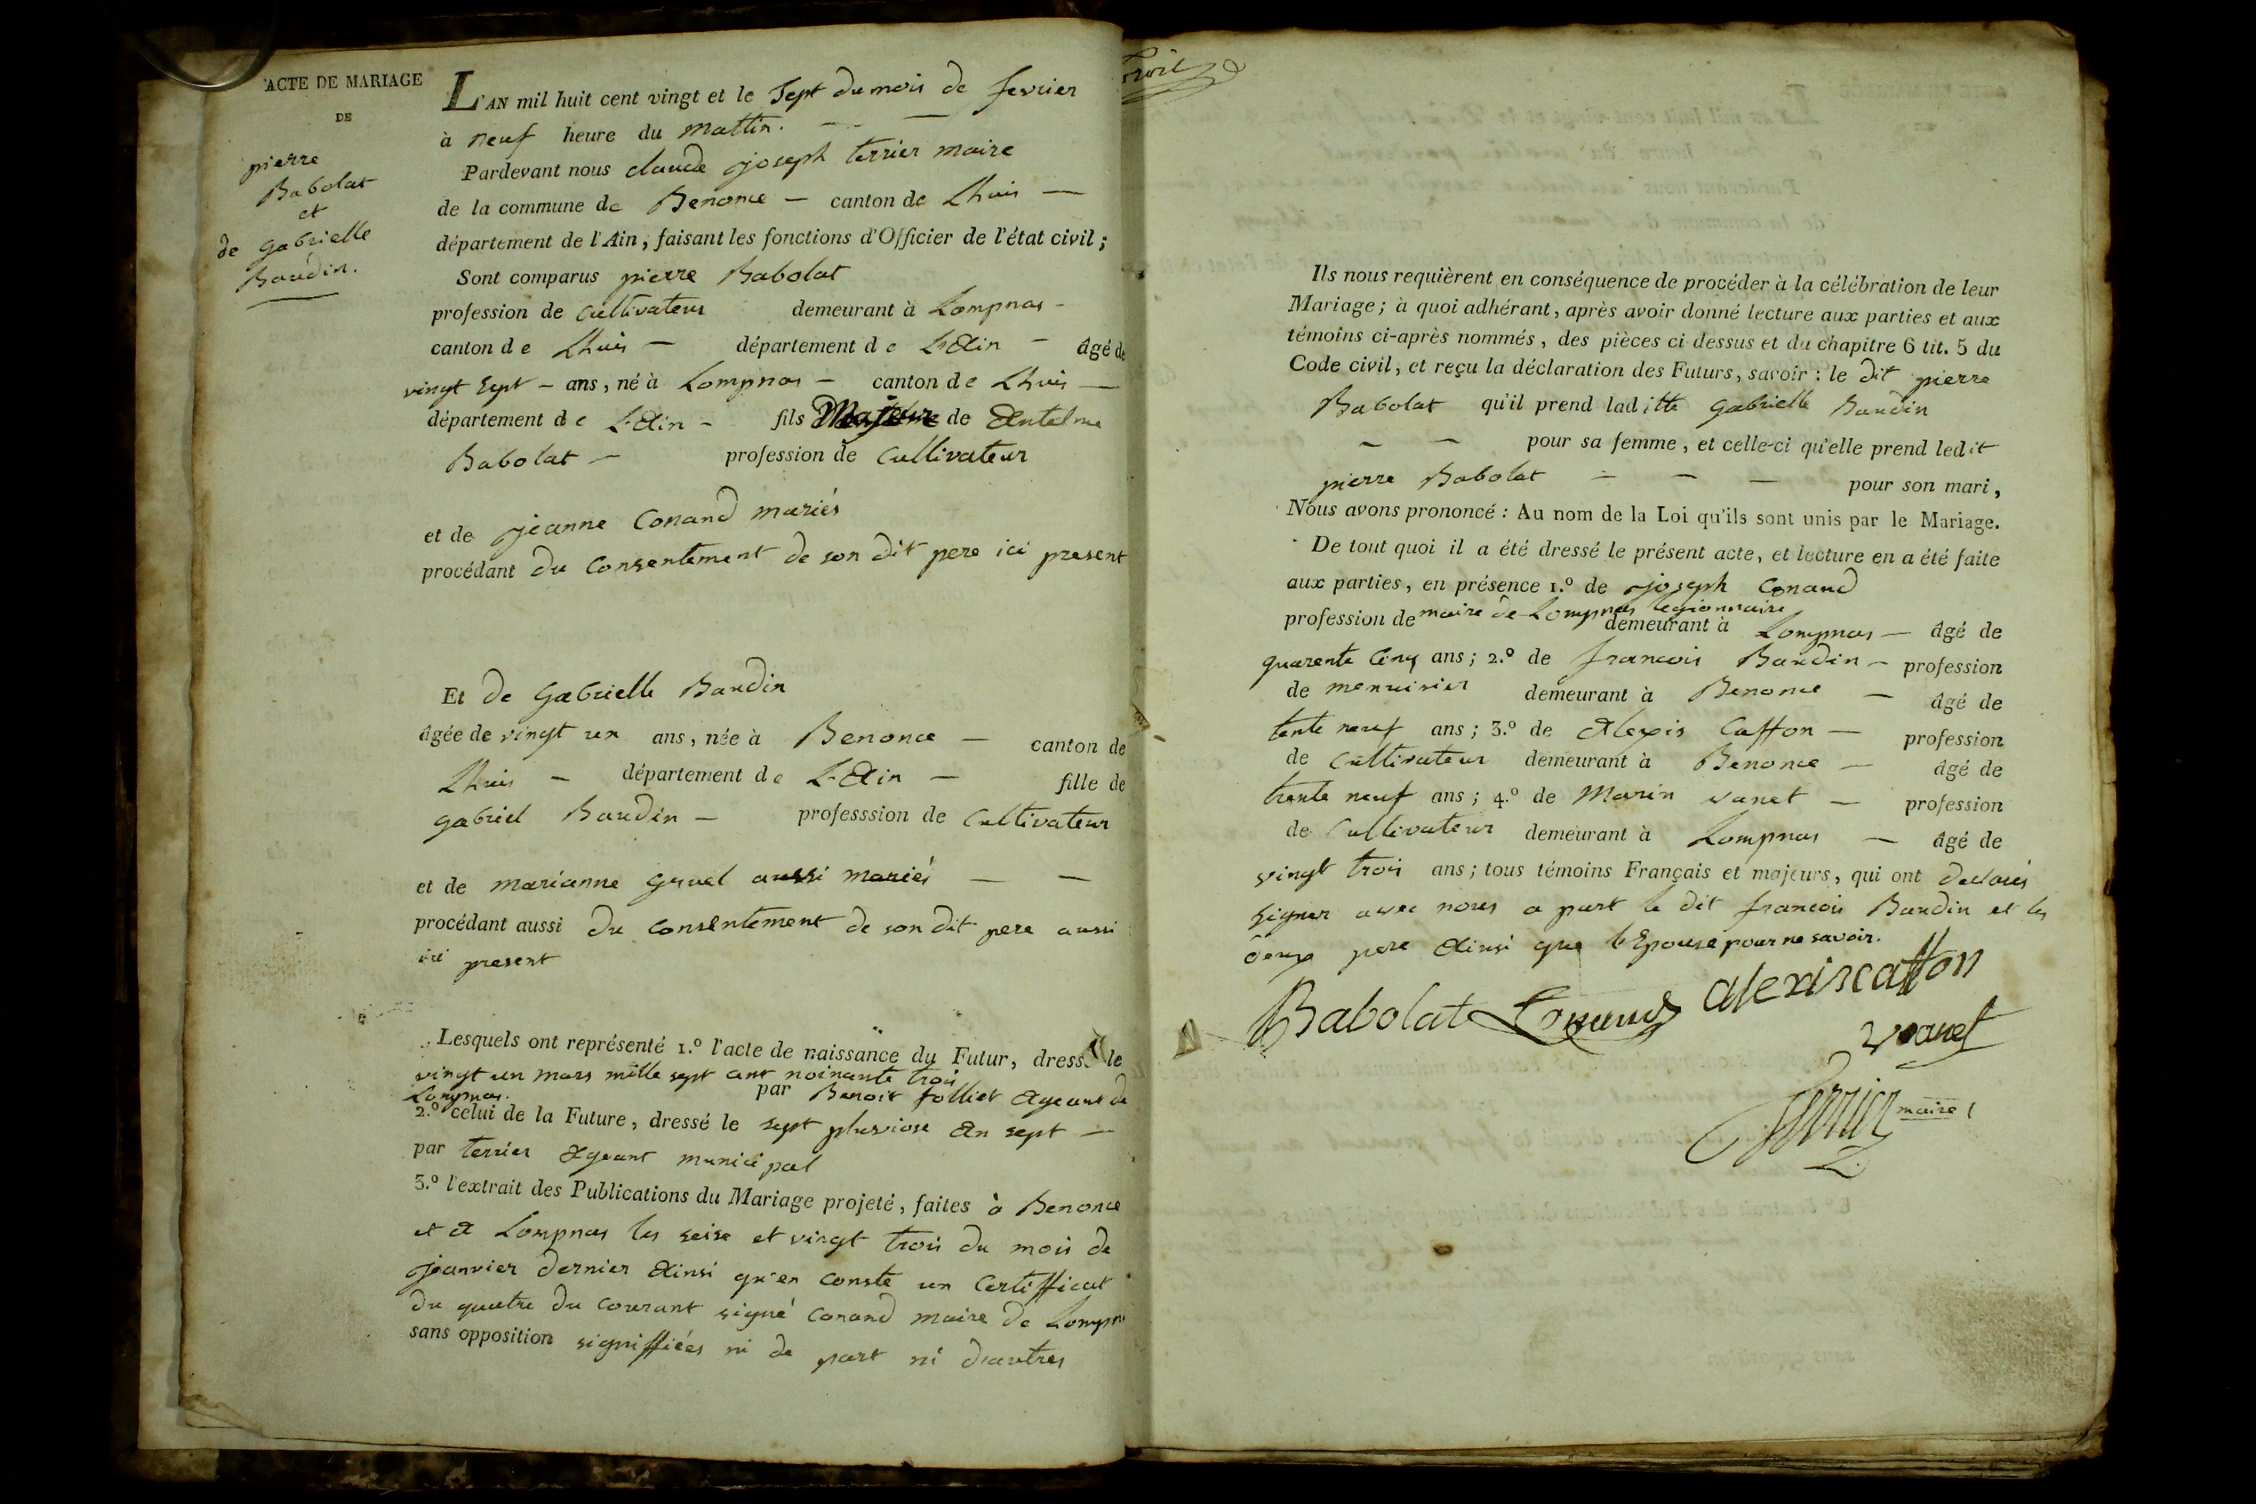 ACTE DE MARIAGE
DE
pierre
Babolat
et
de gabrielle
Baudin.
L'AN mil huit cent vingt et le Sept du mois de fevrier
à neuf heure du mattin. —
Pardevant nous claude joseph terrier maire
de la commune de Benonce — canton de Lhuis —
département de l'Ain, faisant les fonctions d'Officier de l'état civil;
Sont comparus pierre Babolat
profession de cultivateur demeurant à Lompnas -
canton de Lhuis — département de L'Ain — âgé de
vingt sept - ans, né à Lompnas - canton de Lhuis —
département de L'Ain - fils Majeur de Antelme
Babolat — profession de cultivateur
et de jeanne Conand mariés
procédant du consentement de son dit pere ici present
Et de gabrielle Baudin
âgée de vingt un ans, née à Benonce — canton de
Lhuis — département de L'Ain — fille de
gabriel Baudin — professsion de cultivateur
et de marianne gruel aussi mariés — —
procédant aussi du consentement de son dit pere aussi
ici present
Lesquels ont représenté 1.º l'acte de naissance du Futur, dressé le
vingt un mars mille sept cent noinante trois
par Benoit folliet Ageant de
Lompnas.
2.º celui de la Future, dressé le sept pluviose An sept —
par terrier Ageant municipal
3.º l'extrait des Publications du Mariage projeté, faites à Benonce
et A Lompnas les seise et vingt trois du mois de
janvier dernier Ainsi qu'en conste un Certifficat
du quatre du courant signé Conand maire de Lompn
sans opposition signiffiées ni de part ni d'autres
Ils nous requièrent en conséquence de procéder à la célébration de leur
Mariage; à quoi adhérant, après avoir donné lecture aux parties et aux
témoins ci-après nommés, des pièces ci dessus et du chapitre 6 tit. 5 du
Code civil, et reçu la déclaration des Futurs, savoir: le dit pierre
Babolat qu'il prend laditte gabrielle Baudin
— — pour sa femme, et celle-ci qu'elle prend ledit
pierre Babolat — — — pour son mari,
Nous avons prononcé: Au nom de la Loi qu'ils sont unis par le Mariage.
De tout quoi il a été dressé le présent acte, et lecture en a été faite
aux parties, en présence 1.º de joseph Conand
profession de maire de Lompnas legionnaire demeurant à Lompnas — âgé de
quarente cinq ans; 2.º de francois Baudin — profession
de menuisier demeurant à Benonce — âgé de
tente neuf ans; 3.º de Alexis Caffon — profession
de cultivateur demeurant à Benonce — âgé de
trente neuf ans; 4.º de Marin vanet — profession
de cultivateur demeurant à Lompnas — âgé de
vingt trois ans; tous témoins Français et majeurs, qui ont declarés
signer avec nous a part le dit francois Baudin et les
deux pere Ainsi que l'Epouse pour ne savoir.
Babolat Conand alexis caffon
vanet
terrier maire